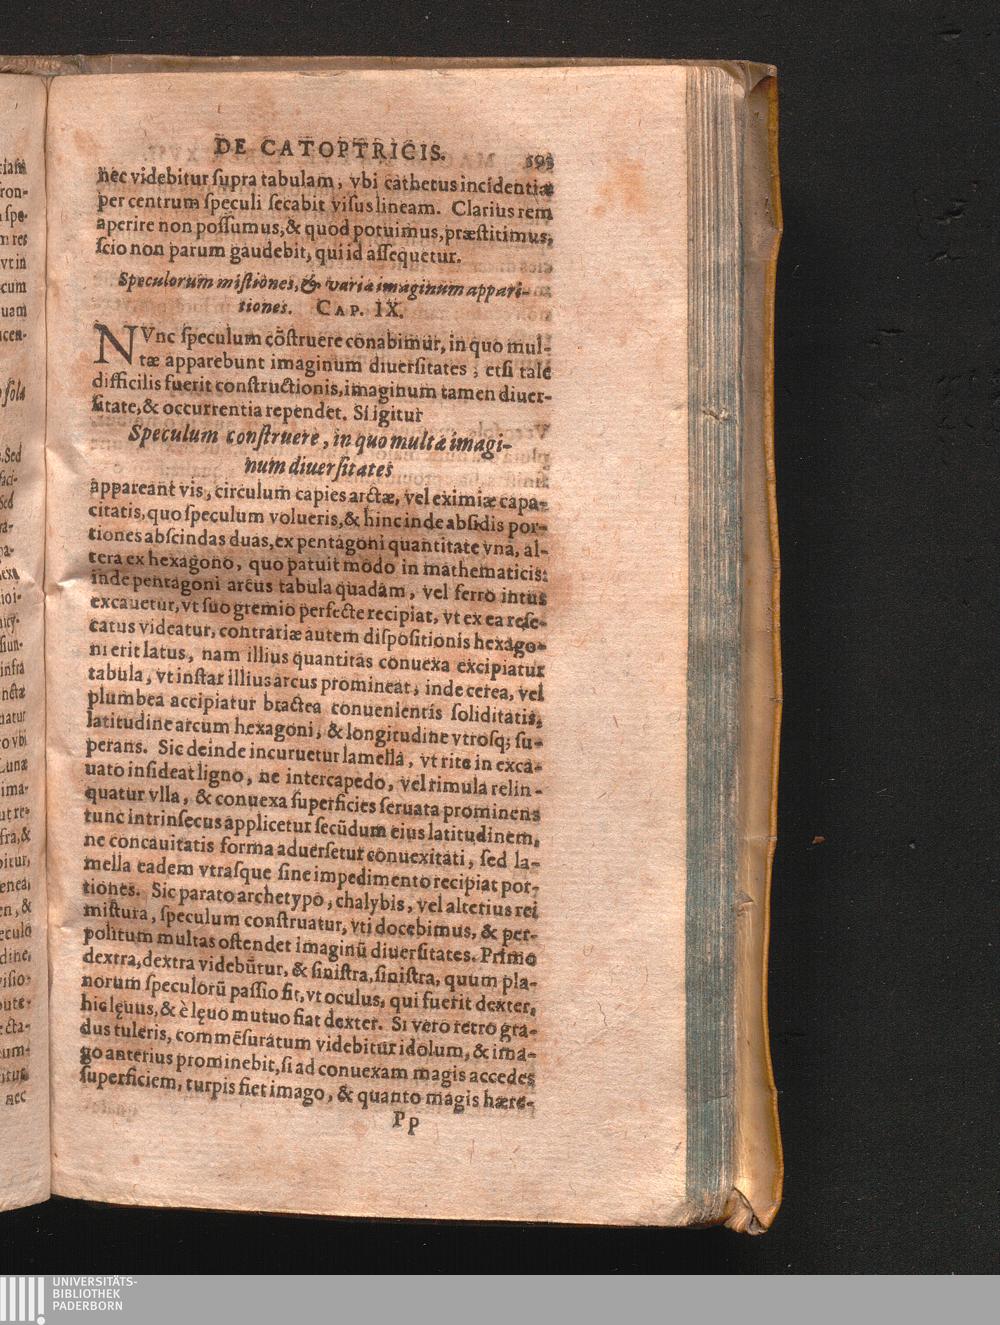 DE CATOPTRICIS. 593
nec videbitur supra tabulam, vbi cathetus incidentiæ
per centrum speculi secabit visus lineam. Clarius rem
aperire non possumus, & quod potuimus, præstitimus,
scio non parum gaudebit, qui id assequetur.
Speculorum mistiones, & variæ imaginum appari-
tiones. CAP. IX.
NVnc speculum cōstruere conabimur, in quo mul-
tæ apparebunt imaginum diuersitates; etsi tale
difficilis fuerit constructionis, imaginum tamen diuer-
sitate, & occurrentia rependet. Si igitur
Speculum construere, in quo multæ imagi-
num diuersitates
appareant vis, circulum capies arctæ, vel eximiæ capa-
citatis, quo speculum volueris, & hinc inde absidis por-
tiones abscindas duas, ex pentagoni quantitate vna, al-
tera ex hexagono, quo patuit modo in mathematicis:
inde pentagoni arcus tabula quadam, vel ferro intus
excauetur, vt suo gremio perfecte recipiat, vt ex ea rese-
catus videatur, contrariæ autem dispositionis hexago-
ni erit latus, nam illius quantitas conuexa excipiatur
tabula, vt instar illius arcus promineat, inde cerea, vel
plumbea accipiatur bractea conuenientis soliditatis,
latitudine arcum hexagoni, & longitudine vtrosq; su-
perans. Sic deinde incuruetur lamella, vt rite in exca-
uato insideat ligno, ne intercapedo, vel rimula relin-
quatur vlla, & conuexa superficies seruata prominens
tunc intrinsecus applicetur secūdum eius latitudinem,
ne concauitatis forma aduersetur conuexitati, sed la-
mella eadem vtrasque sine impedimento recipiat por-
tiones. Sic parato archetypo, chalybis, vel alterius rei
mistura, speculum construatur, vti docebimus, & per-
politum multas ostendet imaginū diuersitates. Primo
dextra, dextra videbūtur, & sinistra, sinistra, quum pla-
norum speculorū passio fit, vt oculus, qui fuerit dexter,
hic lęuus, & è lęuo mutuo fiat dexter. Si vero retro gra-
dus tuleris, commēsuratum videbitur idolum, & ima-
go anterius prominebit, si ad conuexam magis accedes
superficiem, turpis fiet imago, & quanto magis hære-
Pp
UNIVERSITÄTS-
BIBLIOTHEK
PADERBORN